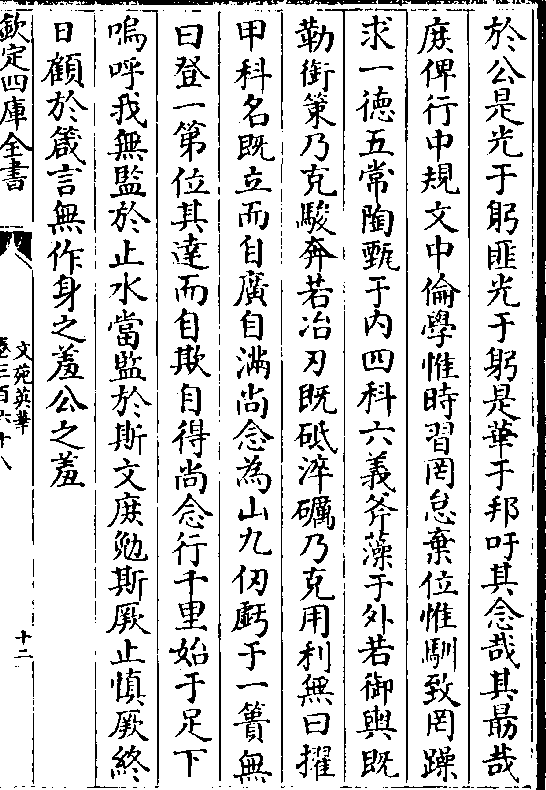 於公是光于躬匪光于躬是華于邦吁其念哉其勗哉
庻俾行中規文中倫學惟時習罔怠棄位惟馴致罔躁
求一徳五常陶甄于内四科六義斧藻于外若御輿既
勒銜策乃克駿奔若冶刃既砥淬礪乃克用利無曰擢
甲科名既立而自廣自滿尚念為山九仞虧于一簣無
曰登一第位其達而自欺自得尚念行千里始于足下
嗚呼我無監於止水當監於斯文庻勉斯厥止慎厥終
日顧於箴言無作身之羞公之羞
欽定四庫全書
文苑英華
卷三百六十八
十二